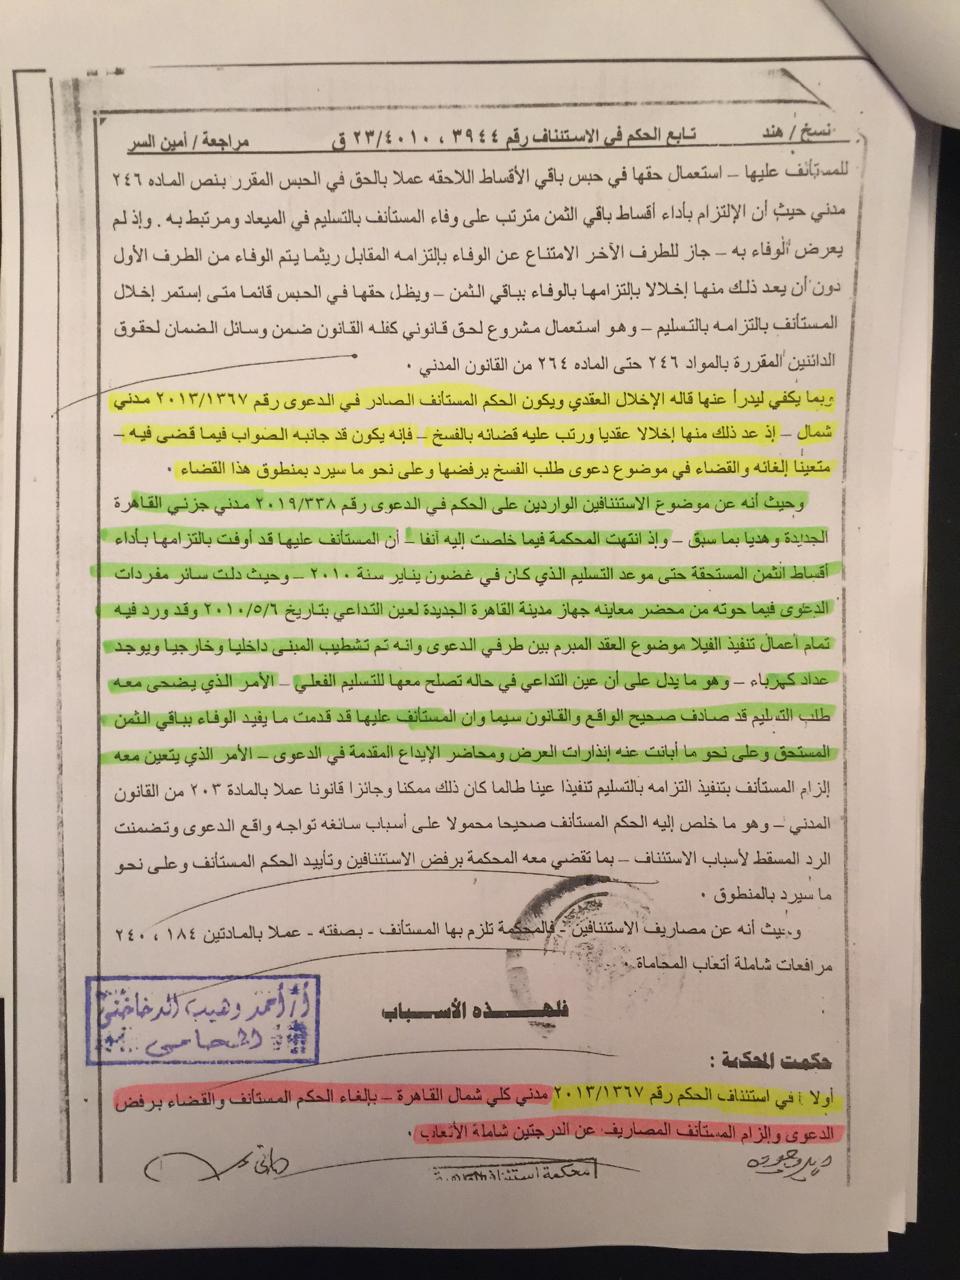 نسخ / هند تابع الحكم في الاستئناف رقم ٣٩٤٤ ، ٢٣/٤٠١٠ ق مراجعة / أمين السر
للمستأنف عليها – استعمال حقها في حبس باقي الأقساط اللاحقه عملا بالحق في الحبس المقرر بنص الماده ٢٤٦
مدني حيث أن الإلتزام بأداء أقساط باقي الثمن مترتب على وفاء المستأنف بالتسليم في الميعاد ومرتبط به . وإذ لم
يعرض الوفاء به – جاز للطرف الآخر الامتناع عن الوفاء بإلتزامه المقابل ريثما يتم الوفاء من الطرف الأول
دون أن يعد ذلك منها إخلالا بإلتزامها بالوفاء بباقي الثمن – ويظل حقها في الحبس قائما متى إستمر إخلال
المستأنف بالتزامه بالتسليم – وهو استعمال مشروع لحق قانوني كفله القانون ضمن وسائل الضمان لحقوق
الدائنين المقررة بالمواد ٢٤٦ حتى الماده ٢٦٤ من القانون المدني .
وبما يكفي ليدرأ عنها قاله الإخلال العقدي ويكون الحكم المستأنف الصادر في الدعوى رقم ٢٠١٣/١٣٦٧ مدني
شمال – إذ عد ذلك منها إخلالا عقديا ورتب عليه قضائه بالفسخ – فإنه يكون قد جانبه الصواب فيما قضى فيه –
متعينا إلغائه والقضاء في موضوع دعوى طلب الفسخ برفضها وعلى نحو ما سيرد بمنطوق هذا القضاء .
وحيث أنه عن موضوع الاستئنافين الواردين على الحكم في الدعوى رقم ٢٠١٩/٣٣٨ مدني جزئي القاهرة
الجديدة وهديا بما سبق – وإذ انتهت المحكمة فيما خلصت إليه آنفا – أن المستأنف عليها قد أوفت بالتزامها بأداء
أقساط الثمن المستحقة حتى موعد التسليم الذي كان في غضون يناير سنة ٢٠١٠ – وحيث دلت سائر مفردات
الدعوى فيما حوته من محضر معاينه جهاز مدينة القاهرة الجديدة لعين التداعي بتاريخ ٢٠١٠/٥/٦ وقد ورد فيه
تمام أعمال تنفيذ الفيلا موضوع العقد المبرم بين طرفي الدعوى وانه تم تشطيب المبنى داخليا وخارجيا ويوجد
عداد كهرباء – وهو ما يدل على أن عين التداعي في حاله تصلح معها للتسليم الفعلي – الأمر الذي يضحى معه
طلب التسليم قد صادف صحيح الواقع والقانون سيما وان المستأنف عليها قد قدمت ما يفيد الوفاء بباقي الثمن
المستحق وعلى نحو ما أبانت عنه إنذارات العرض ومحاضر الإيداع المقدمة في الدعوى – الأمر الذي يتعين معه
إلزام المستأنف بتنفيذ التزامه بالتسليم تنفيذا عينا طالما كان ذلك ممكنا وجائزا قانونا عملا بالمادة ٢٠٣ من القانون
المدني – وهو ما خلص إليه الحكم المستأنف صحيحا محمولا على أسباب سائغه تواجه واقع الدعوى وتضمنت
الرد المسقط لأسباب الاستئناف – بما تقضي معه المحكمة برفض الاستئنافين وتأييد الحكم المستأنف وعلى نحو
ما سيرد بالمنطوق .
وحيث أنه عن مصاريف الاستئنافين – فالمحكمة تلزم بها المستأنف - بصفته - عملا بالمادتين ١٨٤ ، ٢٤٠
مرافعات شاملة أتعاب المحاماة .
فلهذه الأسباب
أ/ أحمد وهيب
المحامى
حكمت المحكمة :
أولا : في استئناف الحكم رقم ٢٠١٣/١٣٦٧ مدني كلي شمال القاهرة – بإلغاء الحكم المستأنف والقضاء برفض
الدعوى وإلزام المستأنف المصاريف عن الدرجتين شاملة الأتعاب .
محكمة استئناف القاهرة